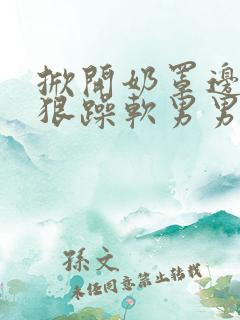 掀開奶罩邊
狠躁軟男男
孫文
未經同意禁止转载